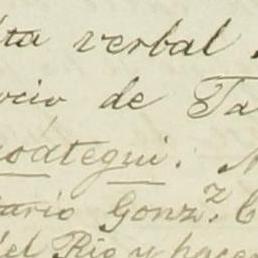 ta verbal
ocio de Ta
oátegui.
tario Gonz.z C
del Rio y hacer